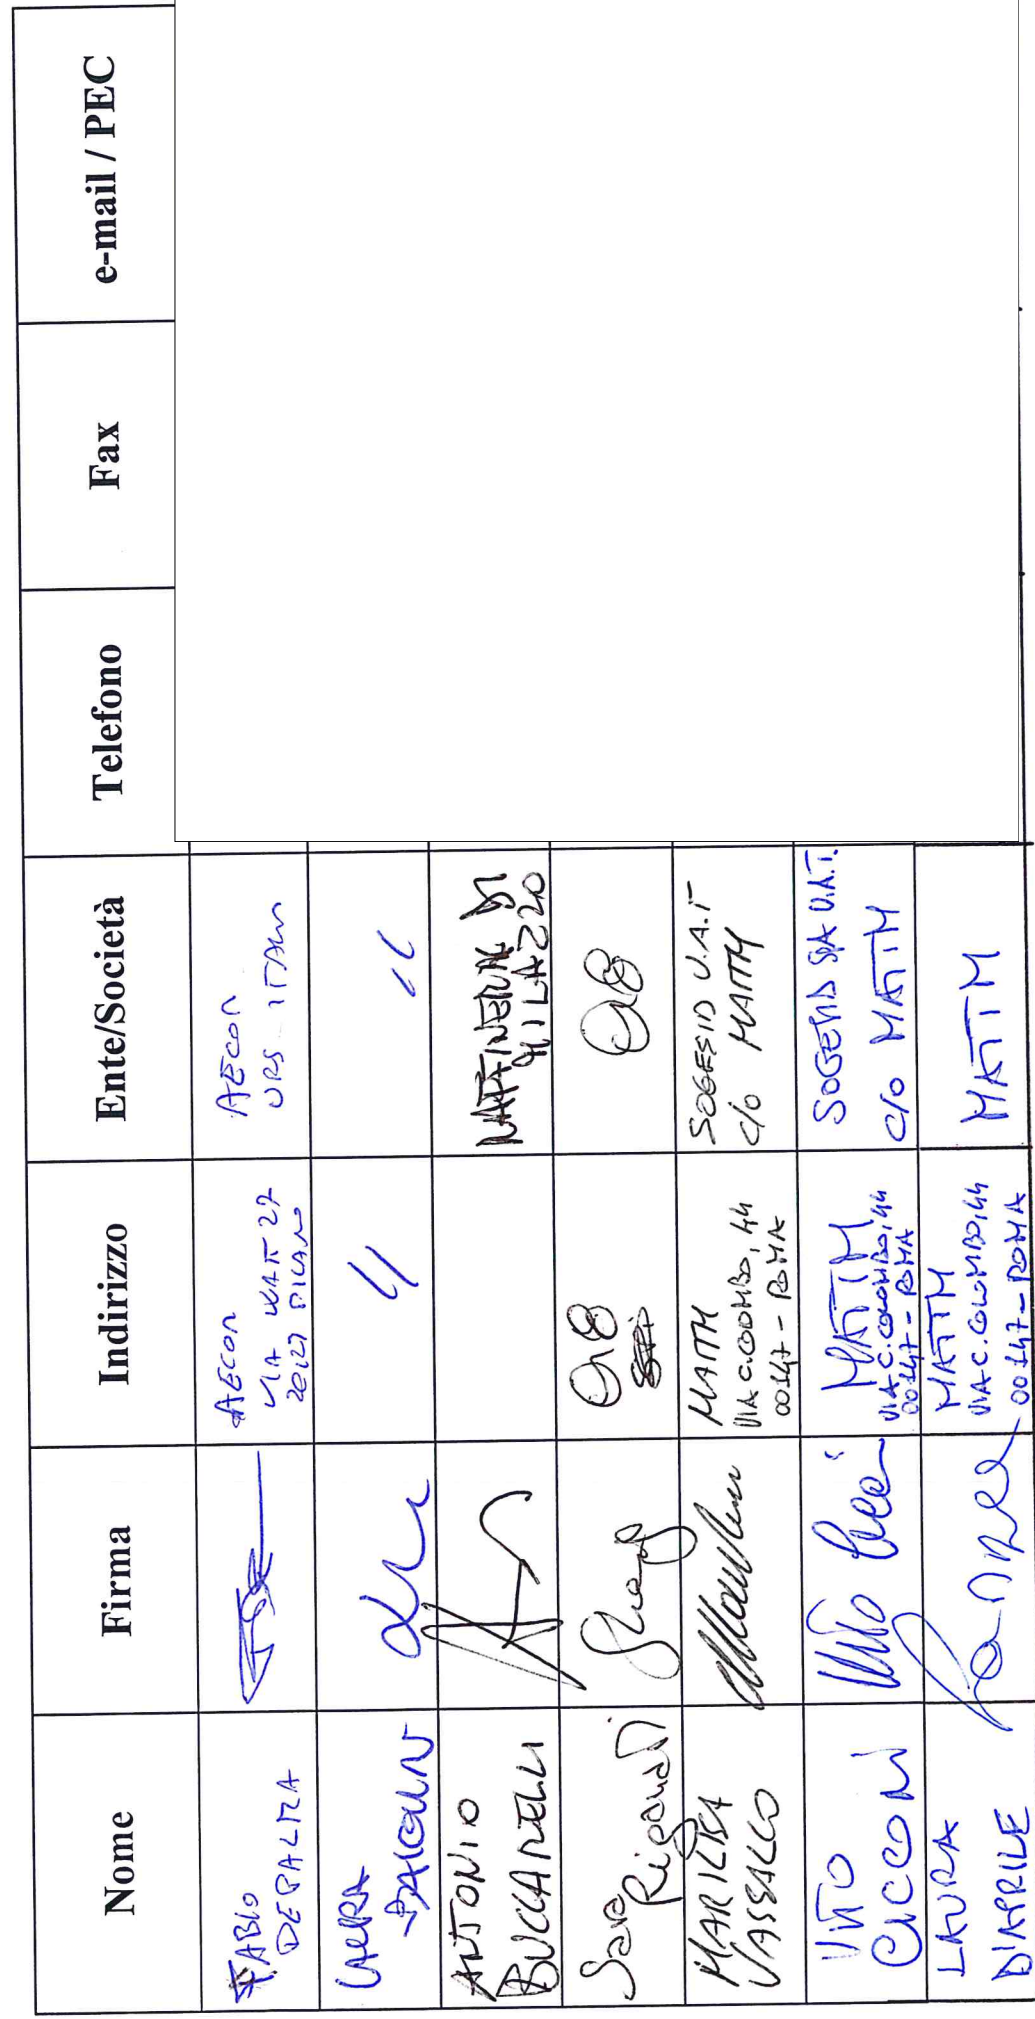 Nome Firma Indirizzo Ente/Società Telefono Fax e-mail / PEC
FABIO
DEPALMA
AECOM
VIA WATT 27
20121 MILANO
AECOM
URS ITALIA
LAURA
ANTONIO
BUCCARELLI
RAFFINERIA DI
MILAZZO
Sara
MARILISA
VASSALLO
MATTM
VIA C. COLOMBO, 44
00147 - ROMA
SOGESID U.A.T
C/O MATTM
VITO
CICCONI
MATTM
VIA C. COLOMBO, 44
00147 - ROMA
SOGESID SPA U.A.T.
C/O MATTM
LAURA
D'APRILE
MATTM
VIA C. COLOMBO, 44
00147 - ROMA
MATTM